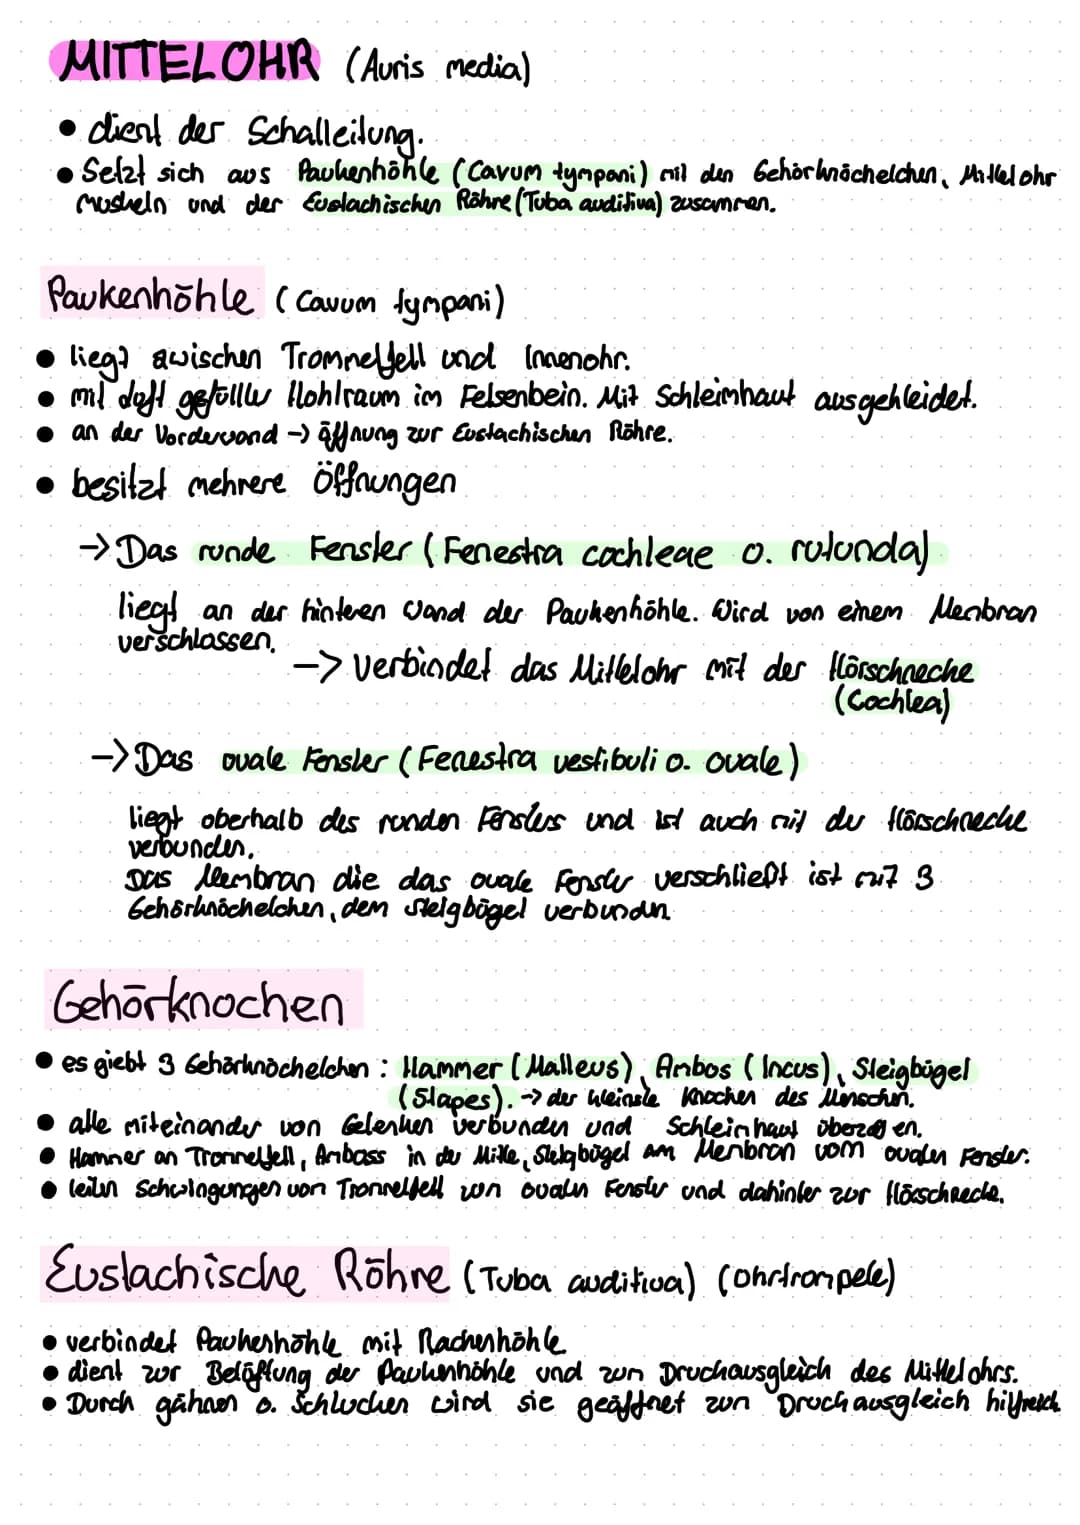 MITTELOHR (Auris media)
• dient der Schalleitung.
• Setzt sich aus Paukenhöhle (Cavum tympani) mit den Gehörknöchelchen, Mittelohr
muskeln und der Eustachischen Röhre (Tuba auditiva) zusammen.
Paukenhöhle (Cavum tympani)
• liegt zwischen Trommelfell und Innenohr.
• mit luft gefüllter Hohlraum im Felsenbein. Mit Schleimhaut ausgekleidet.
• an der Vorderwand -> öffnung zur Eustachischen Röhre.
• besitzt mehrere Öffnungen
-> Das runde Fenster (Fenestra cochleae o. rotunda)
liegt an der hinteren Wand der Paukenhöhle. Wird von einem Membran
verschlossen.
-> verbindet das Mittelohr mit der Hörschnecke
(Cochlea)
-> Das ovale Fenster (Fenestra vestibuli o. ovale)
liegt oberhalb des runden Fensters und ist auch mit der Hörschnecke
verbunden.
Das Membran die das ovale Fenster verschließt ist mit 3
Gehörknöchelchen, dem Steigbügel verbunden
Gehörknochen
• es giebt 3 Gehörknöchelchen : Hammer (Malleus), Ambos (Incus), Steigbügel
(Stapes). -> der kleinste Knochen des Menschen.
• alle miteinander von Gelenken verbunden und Schleimhaut überzogen.
• Hammer an Trommelfell, Amboss in der Mitte, Steigbügel am Membran vom ovalen Fenster.
• leiten Schwingungen von Trommelfell zum ovalen Fenster und dahinter zur Hörschnecke.
Eustachische Röhre (Tuba auditiva) (Ohrtrompete)
• verbindet Paukenhöhle mit Rachenhöhle
• dient zur Belüftung der Paukenhöhle und zum Druckausgleich des Mittelohrs.
• Durch gähnen o. Schlucken wird sie geöffnet zum Druckausgleich hilfreich